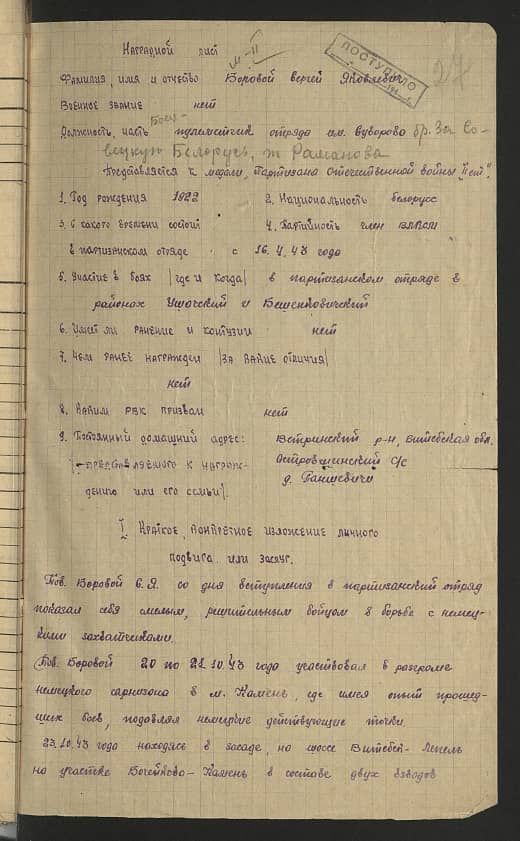 Наградной лист
м-II
ПОСТУПИЛО
27
Фамилия, имя и отчество Боровой Сергей Яковлевич
Военное звание нет
Должность, часть Боец-пулеметчик отряда им. Суворова бр. За Со-
вецкую Белорусь, т Романова
Представляется к медали „партизана отечественной войны II ст."
1. Год рождения 1922 2. Национальность белорусс
3. С какого времени состоит 4. Партийность член ВЛКСМ
в партизанском отряде с 16.V.43 года
5. Участие в боях /где и когда/ в партизанском отряде в
районах Ушачский и Бешенковический
6. Имеет ли ранение и контузии нет
7. Чем ранее награжден /за какие отличия/
нет
8. Каким РВК призван нет
9. Постоянный домашний адрес: Ветринский р-н, Витебская обл.
/представляемого к награж- Островщинский с/с
дению или его семьи/. д. Паншевичи
I. Краткое, конкретное изложение личного
подвига или заслуг.
Тов. Боровой С.Я. со дня вступления в партизанский отряд
показал себя смелым, решительным бойцом в борьбе с немец-
кими захватчиками.
Тов. Боровой 20 по 21.10.43 года участвовал в разгроме
немецкого гарнизона в м. Камень, где имея опыт прошед-
ших боев, подавлял немецкие действующие точки.
23.10.43 года находясь в засаде, на шоссе Витебск-Лепель
на участке Бочейково-Камень в составе двух взводов